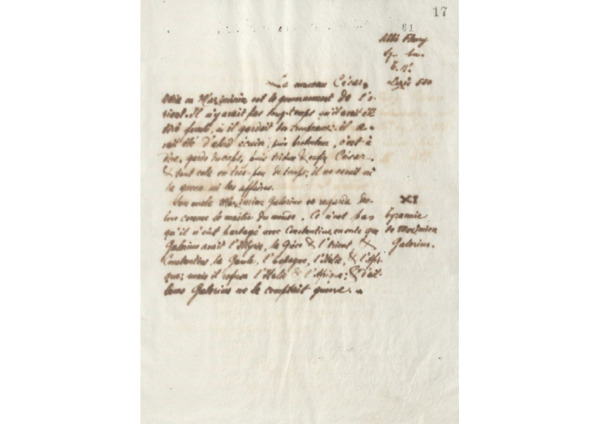 17
61
Abbé Fleury
Le nouveau César
Maximin eut le gouvernement de l'o-
rient. Il n'y avait pas longtemps qu'il avait été
tiré
il gardait les troupeaux: il a-
vait été d'abord écuier, puis protecteur, c'est à
dire, garde du corps, puis tribun & enfin César.
& tout cela en très-peu de temps; il ne savait ni
la guerre ni les affaires.
Son oncle Maximien Galerius se regarda dès-
lors comme le maître du monde. Ce n'est pas
qu'il n'eut partagé avec Constantius, en sorte que
Galerius avait l'Illyrie, la Grèce & l'orient, &
Constantius, la Gaule, l'Espagne, l'Italie, & l'Afri-
que; mais il refusa l'Italie & l'Afrique; & d'ail-
leurs Galerius ne le comptait guère.
XI
tyrannie
de Maximien
Galerius.